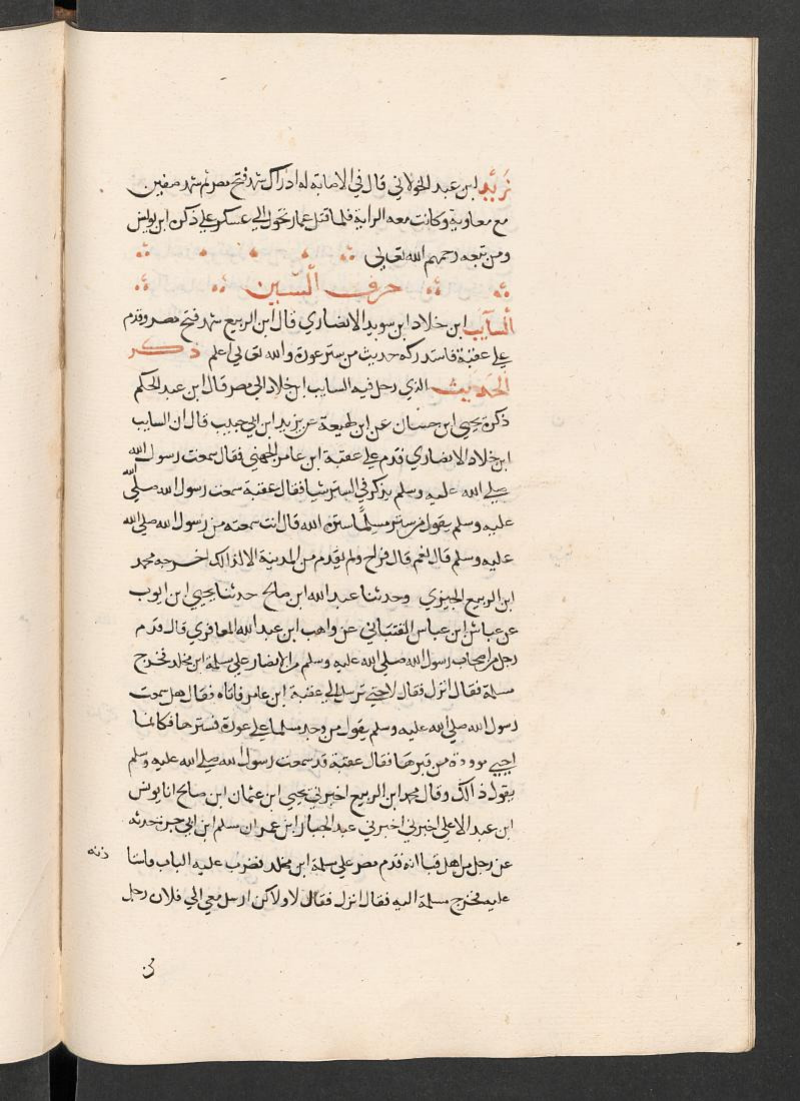 زييد ابن عبد الخولاني قال في الاصابة له ادراك شهد فتح مصر ثم شهد صفين
مع معاوية وكانت معه الراية فلما قتل عمار تحول الي عسكر علي ذكره ابن يونس
ومن تبعه رحمهم الله تعالي
حرف السين
السايب ابن خلاد ابن سويد الانصاري قال ابن الربيع شهد فتح مصر وقدم
علي عقبة فاستدركه حديث من ستر عورة والله تعالي اعلم ذكر
الحديث الذي رحل فيه السايب ابن خلاد الي مصر قال ابن عبد الحكم
ذكره يحيي ابن حسان عن ابن لهيعة عن يزيد ابن ابي حبيب قال ان السايب
ابن خلاد الانصاري قدم علي عقبة ابن عامر الجهني فقال سمعت رسول الله
صلي الله عليه وسلم يذكر في الستر شيا فقال عقبة سمعت رسول الله صلي الله
عليه وسلم يقول من ستر مسلما ستره الله قال انت سمعته من رسول الله صلي الله
عليه وسلم قال نعم قال فراح ولم يقدم من المدينة الا لذالك اخرجه محمد
ابن الربيع الجيزي وحدثنا عبد الله ابن صالح حدثنا يحيي ابن ايوب
عن عياش ابن عباس القتباني عن واهب ابن عبد الله المعافري قال قدم
رجل من اصحاب رسول الله صلي الله عليه وسلم من الانصار علي مسلمة ابن مخلد فخرج
مسلمة فقال انزل فقال لا حتي ترسل الي عقبة ابن عامر فاتاه فقال هل سمعت
رسول الله صلي الله عليه وسلم يقول من وجد مسلما علي عورة فسترها فكانما
احيي موودة من قبرها فقال عقبة قد سمعت رسول الله صلي الله عليه وسلم
يقول ذالك وقال محمد ابن الربيع اخبرني يحيي ابن عثمان ابن صالح انا يونس
ابن عبد الاعلي اخبرني اخبرني عبد الجبار ابن عمر ان مسلم ابن ابي حرة حدثه
عن رجل من اهل قبا انه قدم مصر علي مسلمة ابن مخلد فضرب عليه الباب واستا
ذنه
عليه فخرج مسلمة اليه فقال انزل فقال لا ولاكن ارسل معي الي فلان رجل